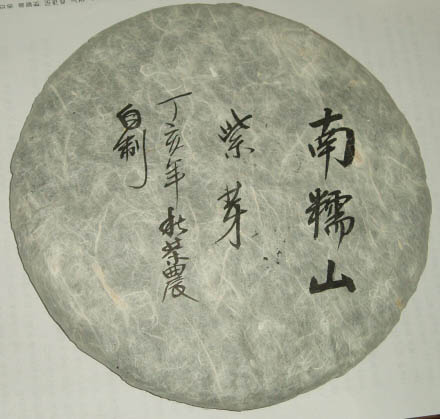 南糯山
紫芽
丁亥年秋茶農
自制